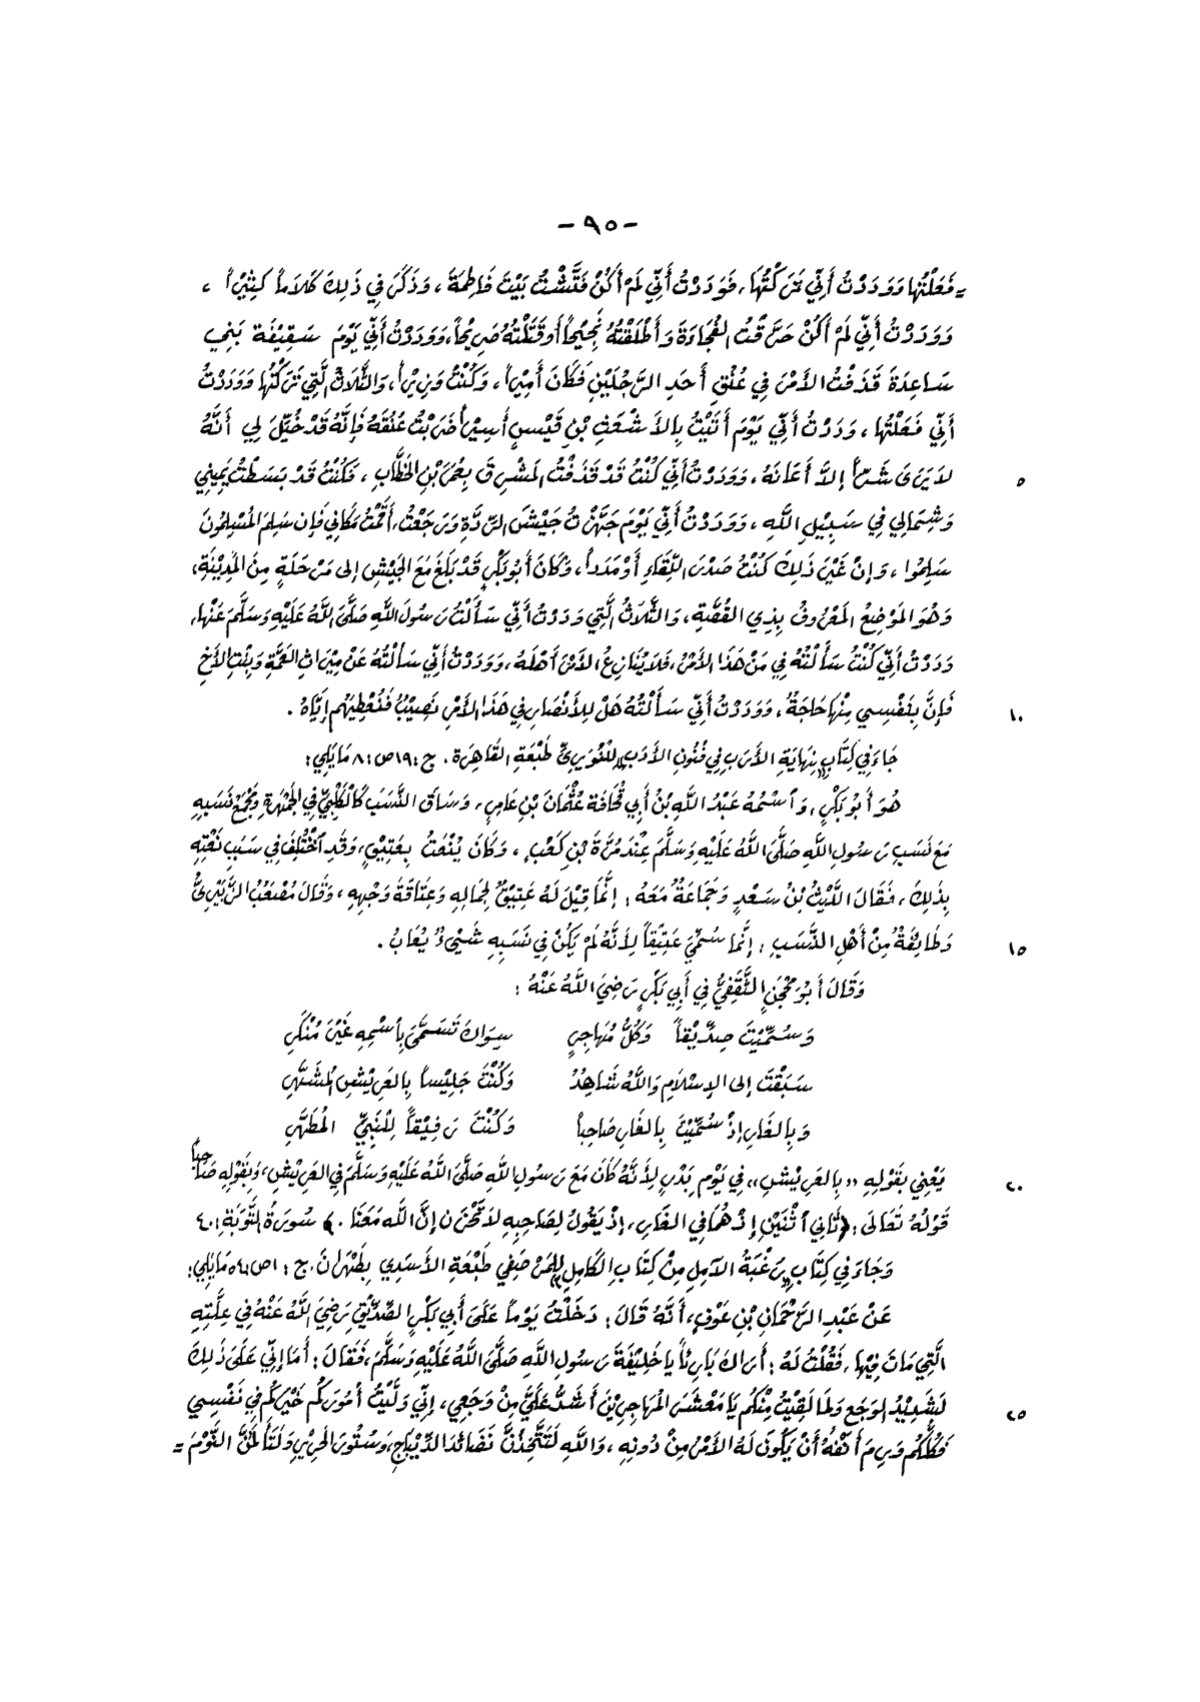 - ٩٥ -
= فَعَلْتُهَا وَوَدَدْتُ أَنِّي تَرَكْتُهَا، فَوَدَدْتُ أَنِّي لَمْ أَكُنْ فَتَّشْتُ بَيْتَ فَاطِمَةَ، وَذَكَرَ فِي ذَلِكَ كَلَاماً كَثِيْراً،
وَوَدَدْتُ أَنِّي لَمْ أَكُنْ حَرَّقْتُ الفُجَاءَةَ وَأَطْلَقْتُهُ نَجِيْحاً أَو قَتَلْتُهُ صَرِيْحاً، وَوَدَدْتُ أَنِّي يَوْمَ سَقِيْفَةِ بَنِي
سَاعِدَةَ قَذَفْتُ الأَمْرَ فِي عُنُقِ أَحَدِ الرَّجُلَيْنِ فَكَانَ أَمِيْراً، وَكُنْتُ وَزِيْراً، وَالثَّلَاثُ الَّتِي تَرَكْتُهَا وَوَدَدْتُ
أَنِّي فَعَلْتُهَا، وَدَدْتُ أَنِّي يَوْمَ أَتَيْتُ بِالأَشْعَثِ بْنِ قَيْسٍ أَسِيْراً ضَرَبْتُ عُنُقَهُ فَإِنَّهُ قَدْ خُيِّلَ لِي أَنَّهُ
لاَ يَرَى شَرّاً إِلاَّ أَعَانَهُ، وَوَدَدْتُ أَنِّي كُنْتُ قَدْ قَذَفْتُ المَشْرِقَ بِعُمَرَ بْنِ الخَطَّابِ، فَكُنْتُ قَدْ بَسَطْتُ يَمِيْنِي ٥
وَشِمَالِي فِي سَبِيْلِ اللَّهِ، وَوَدَدْتُ أَنِّي يَوْمَ جَهَّزْتُ جَيْشَ الرِّدَّةِ وَرَجَعْتُ، أَقَمْتُ مَكَانِي فَإِن سَلِمَ المُسْلِمُونَ
سَلِمُوا، وَإِنْ غَيْرَ ذَلِكَ كُنْتُ صَدْرَ اللِّقَاءِ أَوْ مَدَداً، وَكَانَ أَبُو بَكْرٍ قَدْ بَلَغَ مَعَ الجَيْشِ إِلى مَرْحَلَةٍ مِنَ المَدِيْنَةِ،
وَهُوَ المَوْضِعُ المَعْرُوفُ بِذِي القُصَّةِ، وَالثَّلاَثُ الَّتِي وَدَدْتُ أَنِّي سَأَلْتُ رَسُولَ اللَّهِ صَلَّى اللَّهُ عَلَيْهِ وَسَلَّمَ عَنْهَا،
وَدَدْتُ أَنِّي كُنْتُ سَأَلْتُهُ فِي مَنْ هَذَا الأَمْرُ، فَلَا يُنَازِعُ الأَمْرَ أَهْلَهُ، وَوَدَدْتُ أَنِّي سَأَلْتُهُ عَنْ مِيْرَاثِ العَمَّةِ وَبِنْتِ الأَخِ
فَإِنَّ بِنَفْسِي مِنْهَا حَاجَةً، وَوَدَدْتُ أَنِّي سَأَلْتُهُ هَلْ لِلأَنْصَارِ فِي هَذَا الأَمْرِ نَصِيْبٌ فَنُعْطِيْهُم إِيَّاهُ. ١٠
جَاءَ فِي كِتَابِ «نِهَايَةِ الأَرَبِ فِي فُنُونِ الأَدَبِ» لِلنُّوَيرِيِّ طَبْعَةِ القَاهِرَةِ. ج:١٩ ص:٨ مَايَلِي:
هُوَ أَبُو بَكْرٍ، وَاسْمُهُ عَبْدُ اللَّهِ بْنُ أَبِي قُحَافَةَ عُثْمَانَ بْنِ عَامِرٍ، وَسَاقَ النَّسَبَ كَالكَلْبِيِّ فِي الجَمْهَرَةِ وَيَجْمَعُ نَسَبِهِ
مَعَ نَسَبِ رَسُولِ اللَّهِ صَلَّى اللَّهُ عَلَيْهِ وَسَلَّمَ عِنْدَ مُرَّةَ بْنِ كَعْبٍ، وَكَانَ يُنْعَتُ بِعَتِيْقٍ، وَقَدِ اخْتُلِفَ فِي سَبَبِ نَعْتِهِ
بِذَلِكَ، فَقَالَ اللَّيْثُ بْنُ سَعْدٍ وَجَمَاعَةٌ مَعَهُ: إِنَّمَا قِيْلَ لَهُ عَتِيْقٌ لِجَمَالِهِ وَعِتَاقَةِ وَجْهِهِ، وَقَالَ مُصْعَبُ الزُّبَيْرِيُّ
وَطَائِفَةٌ مِنْ أَهْلِ النَّسَبِ: إِنَّمَا سُمِّيَ عَتِيْقاً لِأَنَّهُ لَمْ يَكُنْ فِي نَسَبِهِ شَيْءٌ يُعَابُ. ١٥
وَقَالَ أَبُو مِحْجَنٍ الثَّقَفِيُّ فِي أَبِي بَكْرٍ رَضِيَ اللَّهُ عَنْهُ:
وَسُمِّيْتَ صِدِّيْقاً وَكُلُّ مُهَاجِرٍ سِوَاكَ تَسَمَّى بِاسْمِهِ غَيْرَ مُنْكَرِ
سَبَقْتَ إِلى الإِسْلاَمِ وَاللَّهُ شَاهِدٌ وَكُنْتَ جَلِيْساً بِالعَرِيْشِ المُشَهَّرِ
وَبِالغَارِ إِذْ سُمِّيْتَ بِالغَارِ صَاحِباً وَكُنْتَ رَفِيْقاً لِلْنَبِيِّ المُطَهَّرِ
يَعْنِي بِقَوْلِهِ «بِالعَرِيْشِ» فِي يَوْمِ بَدْرٍ لِأَنَّهُ كَانَ مَعَ رَسُولِ اللَّهِ صَلَّى اللَّهُ عَلَيْهِ وَسَلَّمَ فِي العَرِيْشِ، وَبِقَوْلِهِ صَاحِباً ٢٠
قَوْلُهُ تَعَالَى: ﴿ثَانِيَ اثْنَيْنِ إِذْ هُمَا فِي الغَارِ، إِذْ يَقُولُ لِصَاحِبِهِ لاَ تَحْزَنْ إِنَّ اللَّهَ مَعَنَا.﴾ سُورَةُ التَّوْبَةِ: ٤٠
وَجَاءَ فِي كِتَابِ «رَغْبَةُ الآمِلِ مِنْ كِتَابِ الكَامِلِ» لِلمَرْصَفِي طَبْعَةِ الأَسَدِي بِطَهْرَانَ. ج: ١ ص:٥٤ مَايَلِي:
عَنْ عَبْدِ الرَّحْمَانِ بْنِ عَوْفٍ، أَنَّهُ قَالَ: دَخَلْتُ يَوْماً عَلَى أَبِي بَكْرٍ الصِّدِّيْقِ رَضِيَ اللَّهُ عَنْهُ فِي عِلَّتِهِ
الَّتِي مَاتَ فِيْهَا، فَقُلْتُ لَهُ: أَرَاكَ بَارِئاً يَا خَلِيْفَةَ رَسُولِ اللَّهِ صَلَّى اللَّهُ عَلَيْهِ وَسَلَّمَ، فَقَالَ: أَمَا إِنِّي عَلَى ذَلِكَ
لَشَدِيْدُ الوَجَعِ وَلَمَا لَقِيْتُ مِنْكُم يَا مَعْشَرَ المُهَاجِرِيْنَ أَشَدُّ عَلَيَّ مِنْ وَجَعِي، إِنِّي وَلَّيْتُ أُمُورَكُم خَيْرَكُم فِي نَفْسِي ٢٥
فَكُلُّكُم وَرِمَ أَنْفُهُ أَنْ يَكُونَ لَهُ الأَمْرُ مِنْ دُونِهِ، وَاللَّهِ لَتَتَّخِذُنَّ نَضَائِدَ الدِّيْبَاجِ، وَسُتُورَ الحَرِيْرِ وَلَتَأْلَمُنَّ النَّوْمَ =